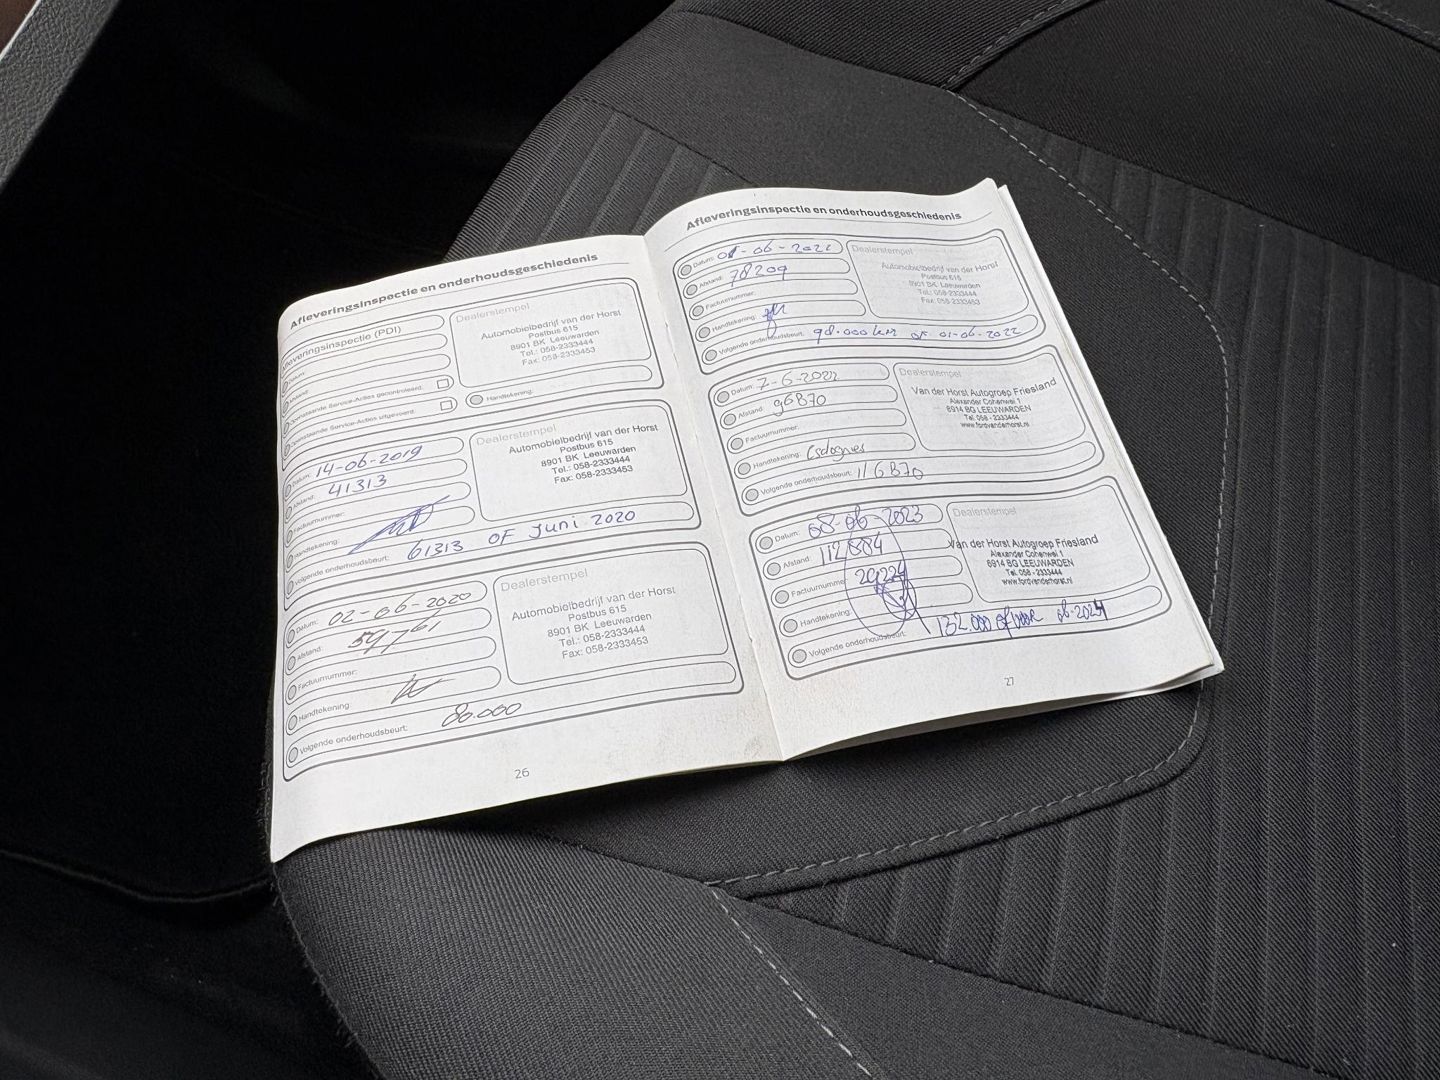 Afleveringsinspectie en onderhoudsgeschiedenis
Afleveringsinspectie (PDI)
Datum:
Service-Acties gecontroleerd:
Service-Acties uitgevoerd:
Dealerstempel
Automobielbedrijf van der Horst
Postbus 615
8901 BK Leeuwarden
Tel.: 058-2333444
Fax: 058-2333453
Handtekening:
Datum: 14-06-2019
Afstand: 41313
Factuurnummer:
Handtekening:
Volgende onderhoudsbeurt: 61313 OF Juni 2020
Dealerstempel
Automobielbedrijf van der Horst
Postbus 615
8901 BK Leeuwarden
Tel.: 058-2333444
Fax: 058-2333453
Datum: 02-06-2020
Afstand:
Factuurnummer:
Handtekening:
Volgende onderhoudsbeurt: 80.000
Dealerstempel
Automobielbedrijf van der Horst
Postbus 615
8901 BK Leeuwarden
Tel.: 058-2333444
Fax: 058-2333453
26
Afleveringsinspectie en onderhoudsgeschiedenis
Datum: 01-06-2021
Afstand: 78209
Factuurnummer:
Handtekening:
Volgende onderhoudsbeurt: 98.000 km OF 01-06-2022
Dealerstempel
Automobielbedrijf van der Horst
Postbus 615
8901 BK Leeuwarden
Tel.: 058-2333444
Fax: 058-2333453
Datum: 7-6-2022
Afstand: 96870
Factuurnummer:
Handtekening:
Volgende onderhoudsbeurt: 116870
Dealerstempel
Van der Horst Autogroep Friesland
Alexander Cohenwei 1
8914 BG LEEUWARDEN
Tel. 058 - 2333444
www.fordvanderhorst.nl
Datum: 08-06-2023
Afstand: 112884
Factuurnummer:
Handtekening:
Volgende onderhoudsbeurt: 132.000 of voor 06-2024
Dealerstempel
Van der Horst Autogroep Friesland
Alexander Cohenwei 1
8914 BG LEEUWARDEN
Tel. 058 - 2333444
www.fordvanderhorst.nl
27